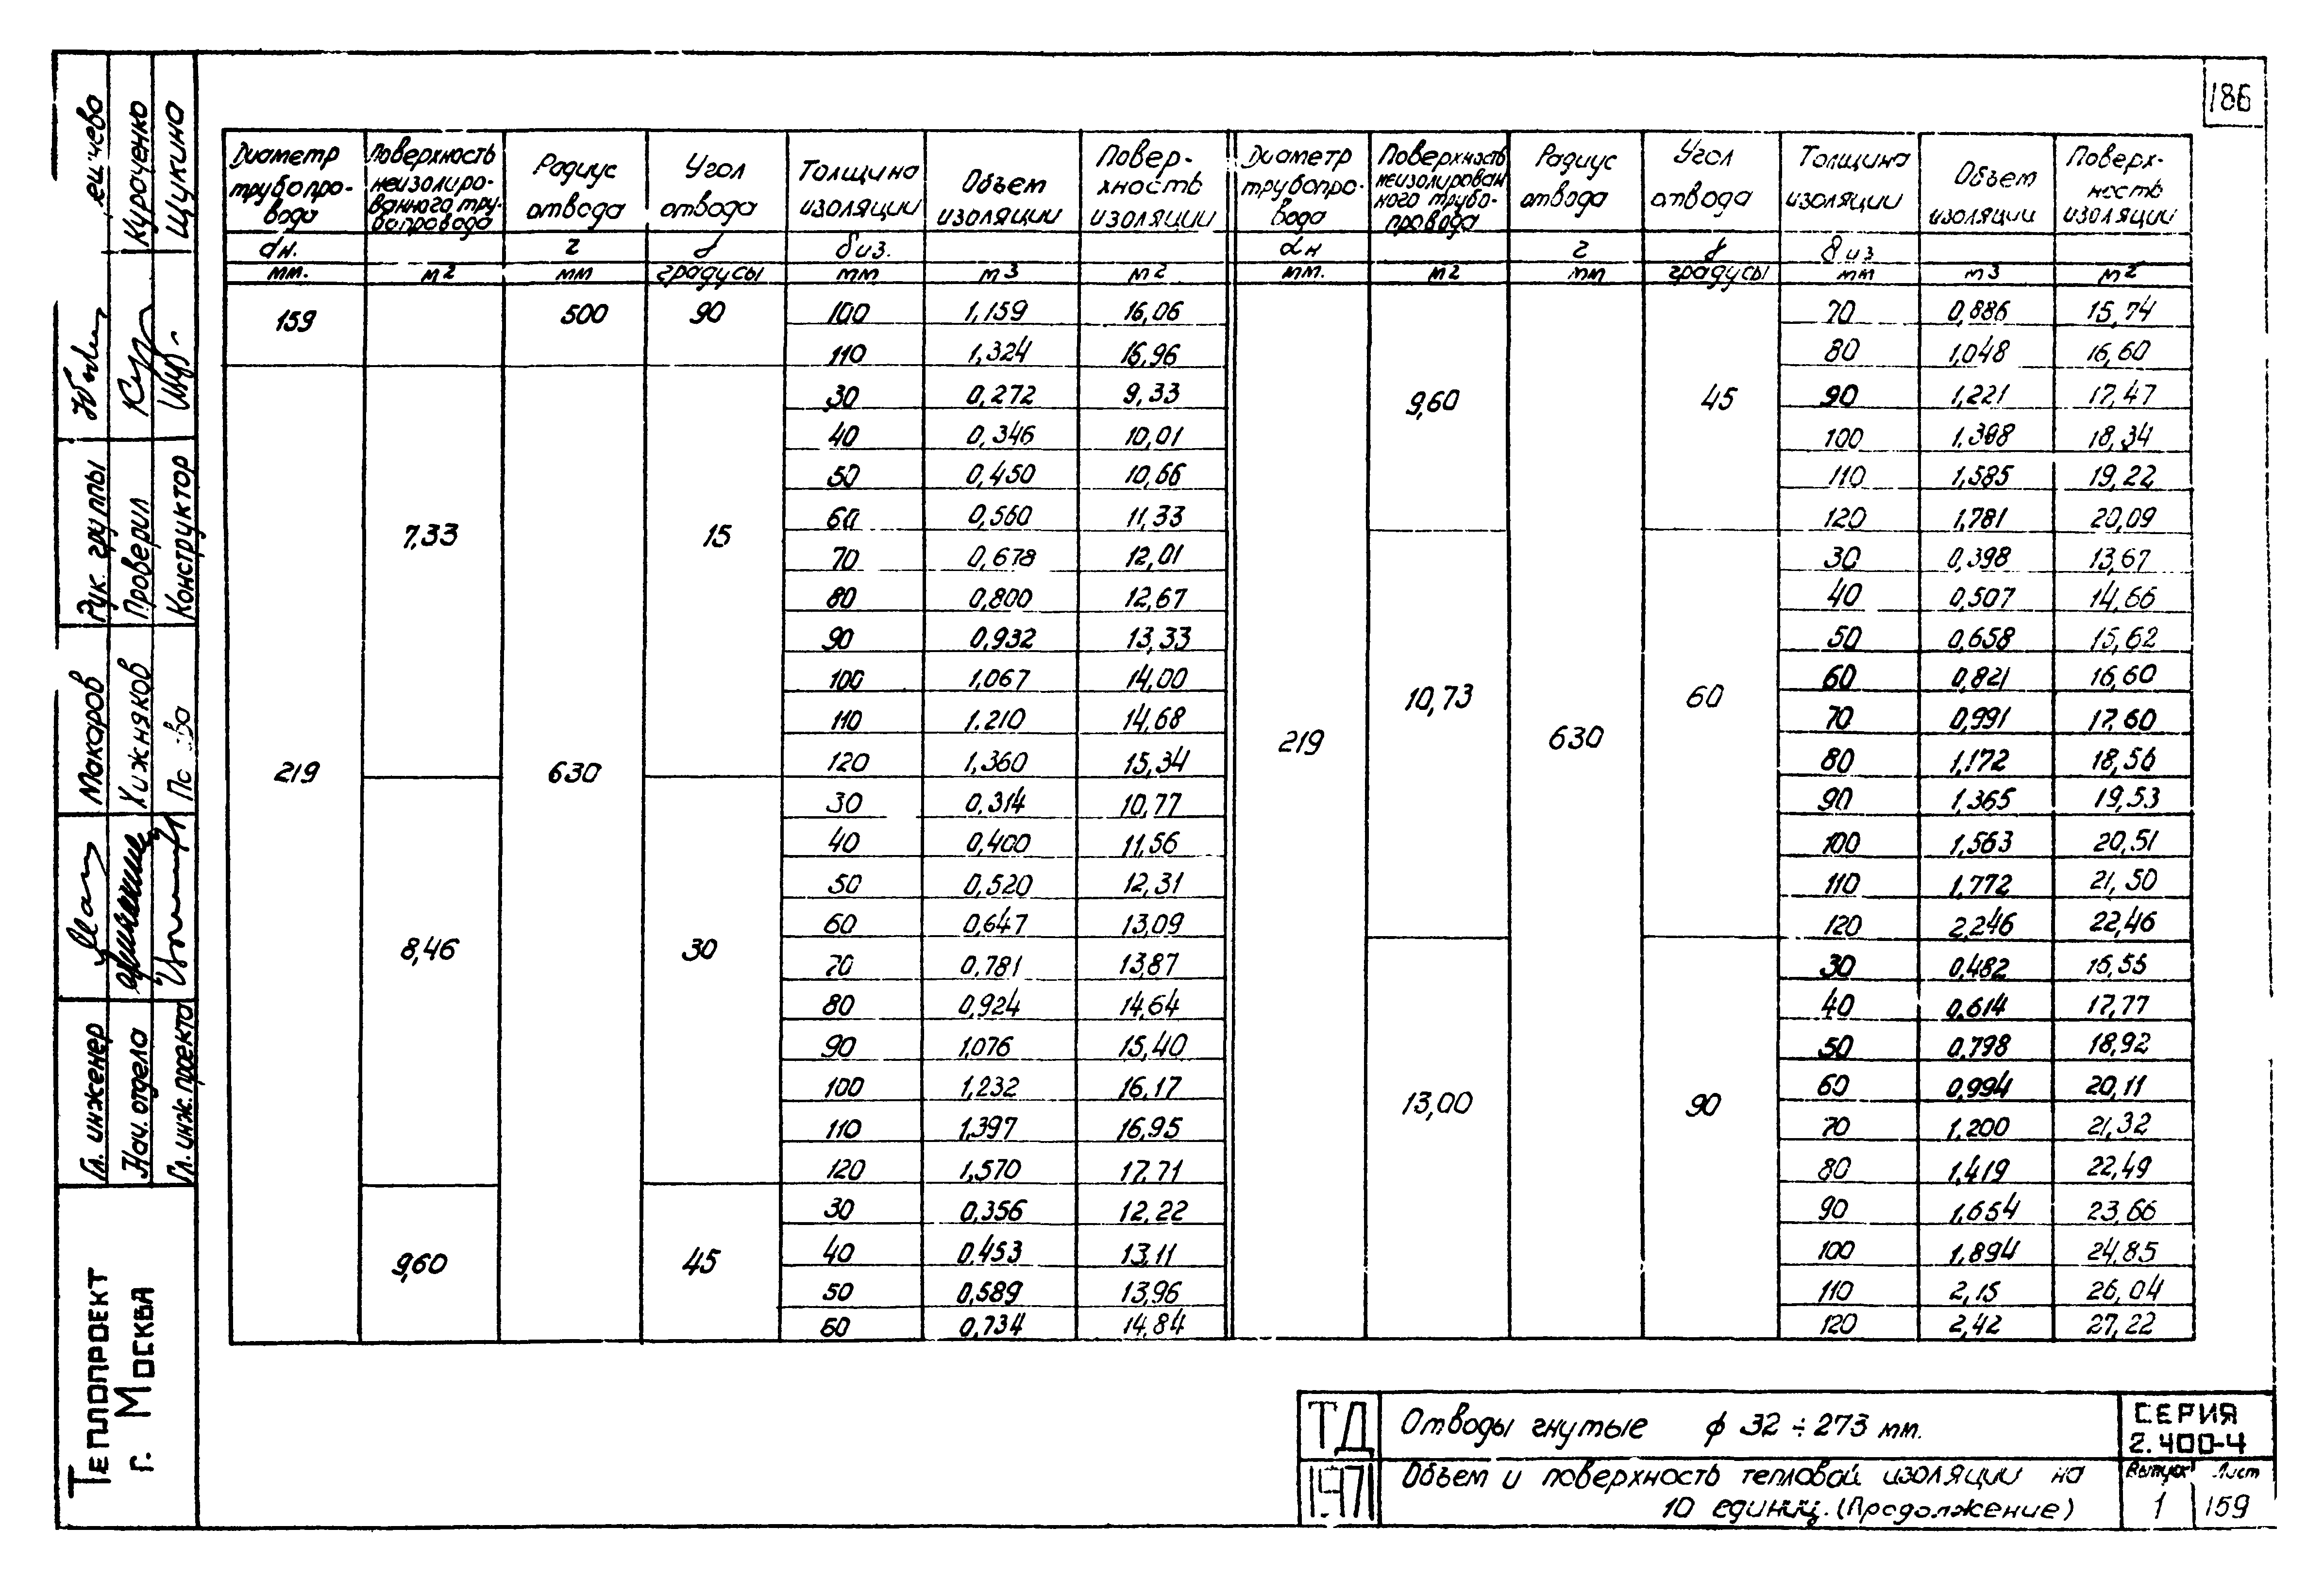 186
Диаметр трубопро-вода | Поверхность неизолиро-ванного тру-бопровода | Радиус отвода | Угол отвода | Толщина изоляции | Объем изоляции | Повер-хность изоляции | Диаметр трубопро-вода | Поверхность неизолирован ного трубо-провода | Радиус отвода | Угол отвода | Толщина изоляции | Объем изоляции | Поверх-ность изоляции
dн. | г | γ | δ из. | dн | г | γ | δ из
мм. | м2 | мм | градусы | мм | м3 | м2 | мм. | м2 | мм | градусы | мм | м3 | м2
159 | 500 | 90 | 100 | 1,159 | 16,06 | 70 | 0,886 | 15,74
110 | 1,324 | 16,96 | 80 | 1,048 | 16,60
30 | 0,272 | 9,33 | 9,60 | 45 | 90 | 1,221 | 17,47
40 | 0,346 | 10,01 | 100 | 1,398 | 18,34
50 | 0,450 | 10,66 | 110 | 1,585 | 19,22
7,33 | 15 | 60 | 0,560 | 11,33 | 120 | 1,781 | 20,09
70 | 0,678 | 12,01 | 30 | 0,398 | 13,67
80 | 0,800 | 12,67 | 40 | 0,507 | 14,66
90 | 0,932 | 13,33 | 50 | 0,658 | 15,62
100 | 1,067 | 14,00 | 10,73 | 60 | 60 | 0,821 | 16,60
110 | 1.210 | 14,68 | 219 | 630 | 70 | 0,991 | 17,60
219 | 630 | 120 | 1,360 | 15,34 | 80 | 1,172 | 18,56
30 | 0,314 | 10,77 | 90 | 1,365 | 19,53
40 | 0,400 | 11,56 | 100 | 1,563 | 20,51
50 | 0,520 | 12,31 | 110 | 1,772 | 21,50
60 | 0,647 | 13,09 | 120 | 2,246 | 22,46
8,46 | 30 | 70 | 0,781 | 13,87 | 30 | 0,482 | 16,55
80 | 0,924 | 14,64 | 40 | 0,614 | 17,77
90 | 1,076 | 15,40 | 50 | 0,798 | 18,92
100 | 1,232 | 16,17 | 13,00 | 90 | 60 | 0,994 | 20,11
110 | 1,397 | 16,95 | 70 | 1,200 | 21,32
120 | 1,570 | 17,71 | 80 | 1,419 | 22,49
30 | 0,356 | 12,22 | 90 | 1,654 | 23,66
9,60 | 45 | 40 | 0,453 | 13,11 | 100 | 1,894 | 24,85
50 | 0,589 | 13,96 | 110 | 2,15 | 26,04
60 | 0,734 | 14,84 | 120 | 2,42 | 27,22
Теплопроект
г. Москва
Гл. инженер Макаров
Нач. отдела Хижняков
Гл. инж. проекта
Рук. группы
Проверил Кураченко
Конструктор Щукина
ТД
1971
Отводы гнутые ф 32÷273 мм.
Объем и поверхность тепловой изоляции на
10 единиц. (Продолжение)
СЕРИЯ
2.400-4
Выпуск Лист
1 159